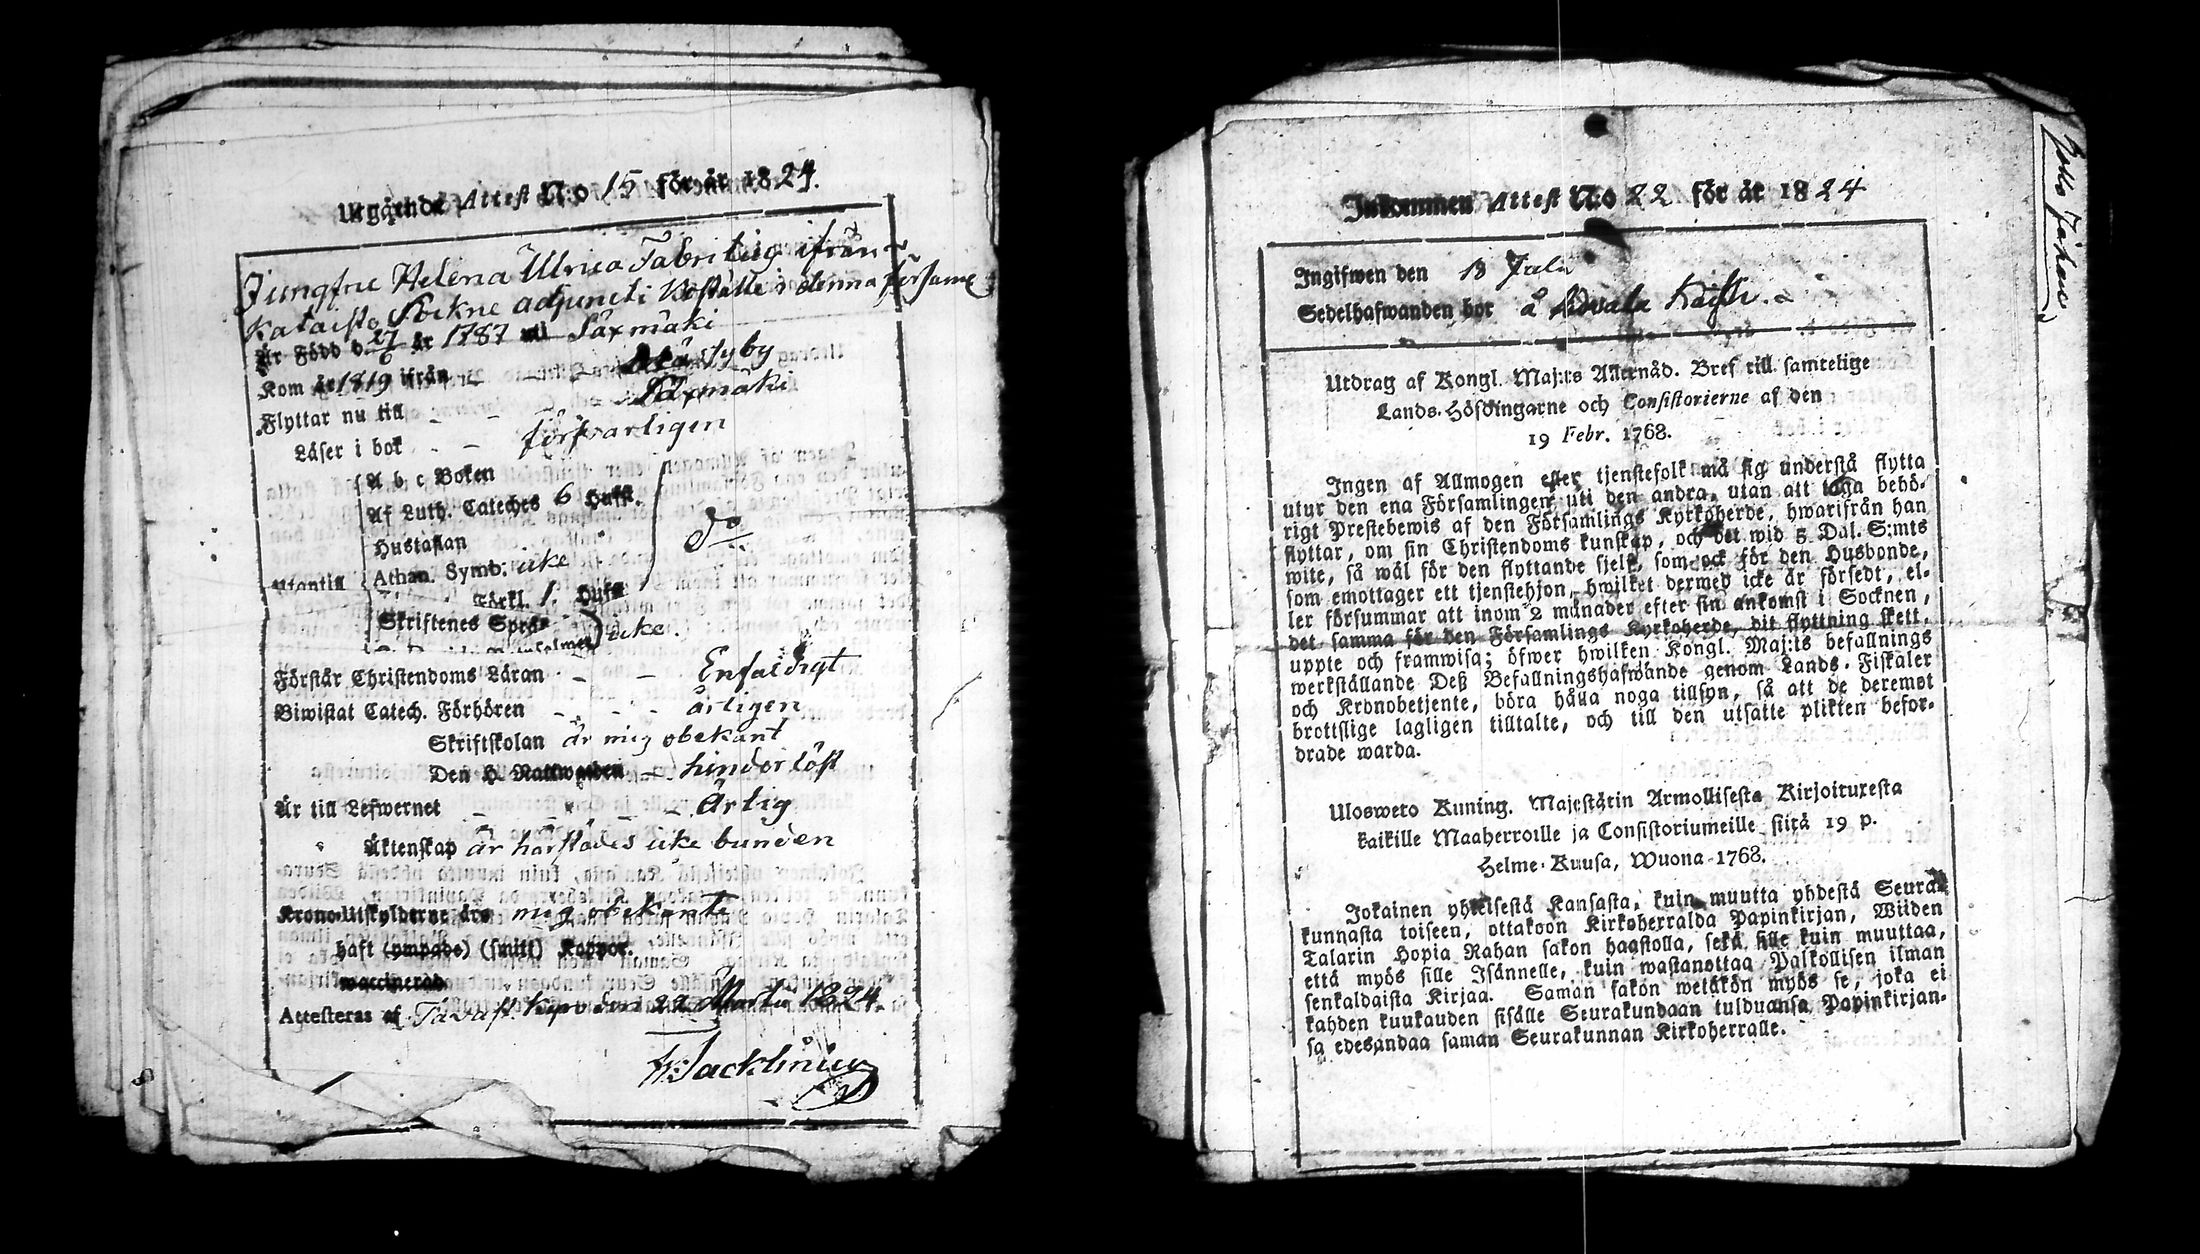 Utgående Attest N:o 15 för år 1824.
Jungfru Helena Ulrica Fabritius ifrån
Kataisto Sockne adjuncti Boställe i denna församl:
Är Född d. 27/6 år 1787 uti Säxmäki
Kom år 1819 ifrån - - -
Flyttar nu till - - - Säxmäki
Läser i bok - - försvarligen
A b c Boken
Af Luth. Cateches 6 Hufst.
Hustaflan
Athan. Symb: icke
Utantill
Förkl. 1. Hufst.
Skriftenes Språk
icke.
Förstår Christendoms Läran - - Enfaldigt
Biwistat Catech. Förhören - - - årligen
Skriftskolan är mig obekant
Den H. Nattwarden - hinderlöst
Är till Lefwernet - - - Ärlig
Äktenskap är härstädes icke bunden
Krono-Utskylderne äro mig obekante
haft (ympade) (smitt) Koppor.
waccinerad
Attesteras af Tavast Kyro den 22 Martii 1824.
Inkommen Attest N:o 22 för år 1824
Ingifwen den 18 Julii
Sedelhafwanden bor å
Utdrag af Kongl. Maj:ts Allernåd. Bref till samtelige
Lands-Höfdingarne och Consistorierne af den
19 Febr. 1768.
Ingen af Allmogen eller tjenstefolk må sig understå flytta
utur den ena Församlingen uti den andra, utan att taga behö-
rigt Prestebewis af den Församlings Kyrkoherde, hwarifrån han
flyttar, om sin Christendoms kunskap, och det wid 5 Dal. S:mts
wite, så wäl för den flyttande sjelf, som ock för den Husbonde,
som emottager ett tjenstehjon, hwilket dermed icke är försedt, el-
ler försummar att inom 2 månader efter sin ankomst i Socknen,
det samma för den Församlings Kyrkoherde, dit flyttning skett,
uppte och framwisa; öfwer hwilken Kongl. Maj:ts befallnings
werkställande Deß Befallningshafwande genom Lands-Fiskaler
och Kronobetjente, böra hålla noga tillsyn, så att de deremot
brottslige lagligen tilltalte, och till den utsatte plikten befor-
drade warda.
Ulosweto Kuning. Majestätin Armollisesta Kirjoituxesta
kaikille Maaherroille ja Consistoriumeille, siitä 19 p.
Helme-Kuusa, Wuona 1768.
Jokainen yhteisestä Kansasta, kuin muutta yhdestä Seura-
kunnasta toiseen, ottakoon Kirkoherralda Papinkirjan, Wiiden
Talarin Hopia Rahan sakon haastolla, sekä sille kuin muuttaa,
että myös sille Isännelle, kuin wastanottaa Palkollisen ilman
senkaldaista Kirjaa. Saman sakon wetäkön myös se, joka ei
kahden kuukauden sisälle Seurakundaan tulduansa Papinkirjan-
sa edesandaa saman Seurakunnan Kirkoherralle.